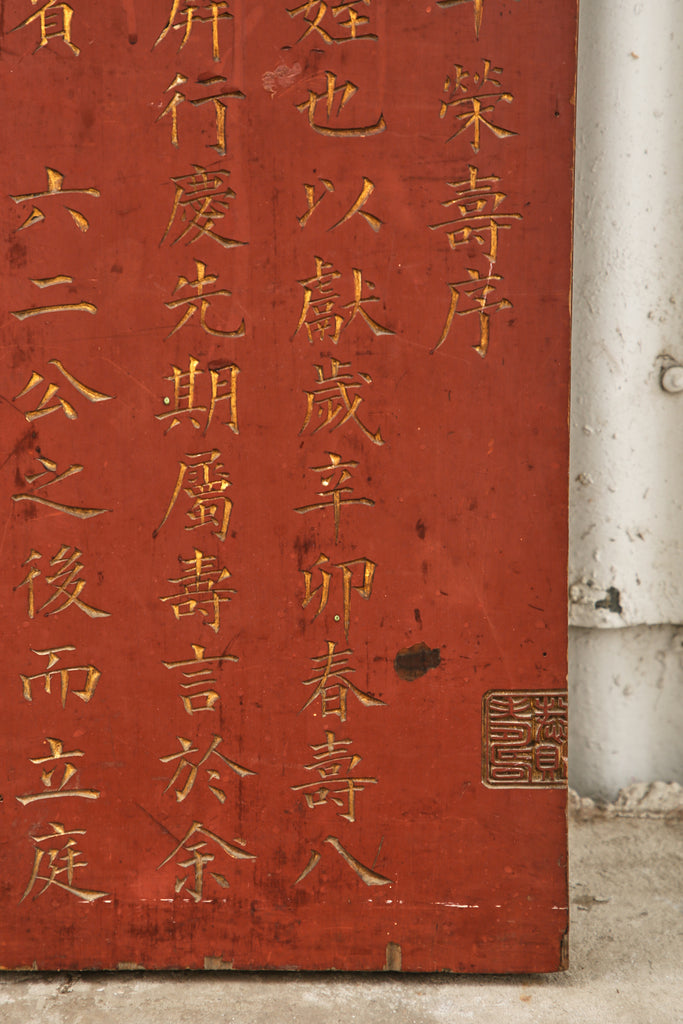 榮壽序
姪也以獻歲辛卯春壽八
屏行慶先期屬壽言於余
六二公之後而立庭